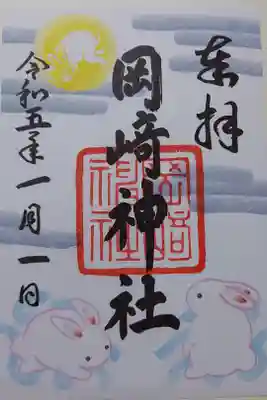 奉拝
岡崎神社
岡崎神社
令和五年一月一日